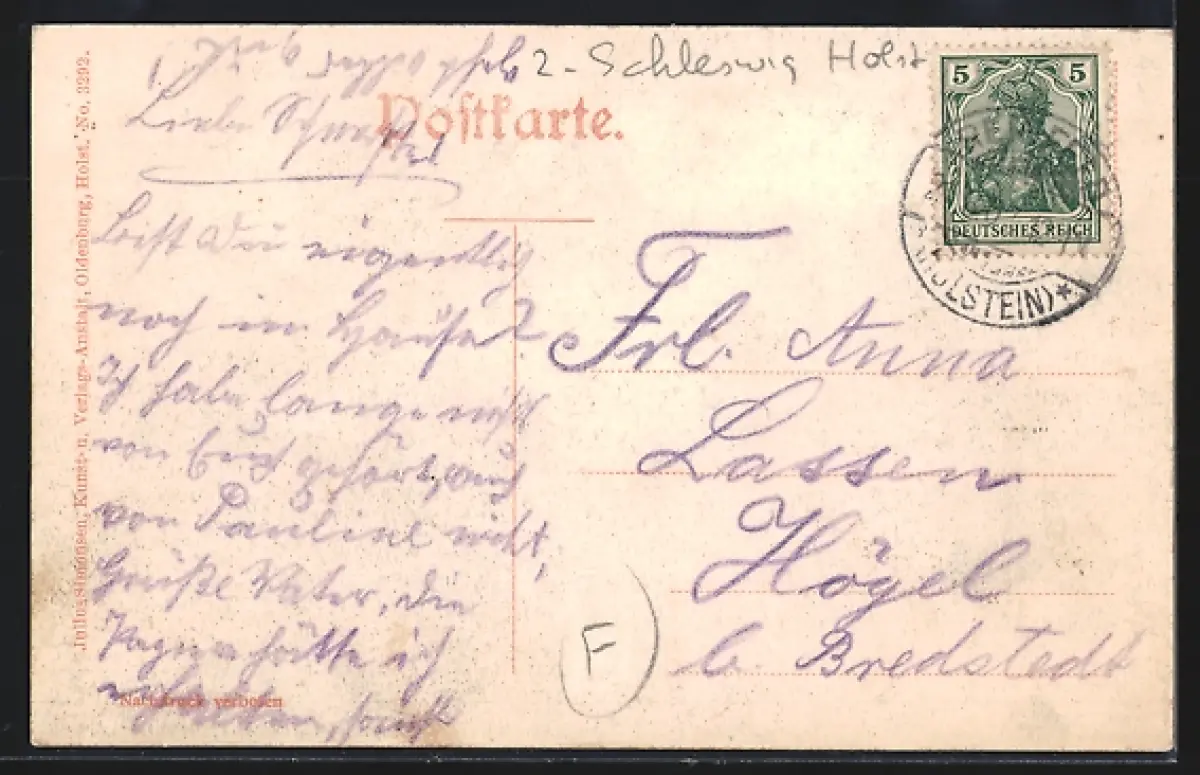 2 - Schleswig Holst
Postkarte.
5 5
DEUTSCHES REICH
HOLSTEIN) *
Liebe Schwester
bist Du eigentlich
noch im Hause?
Ich habe lange nicht
von Euch gehört, auch
von Pauline nicht,
Grüße Vater, die
hätte ich
erhalten, sonst
Frl. Anna
Lassen
Högel
b. Bredstedt
F
Nachdruck verboten
Julius Simonsen, Kunst- u. Verlags-Anstalt, Oldenburg, Holst. No. 3292.